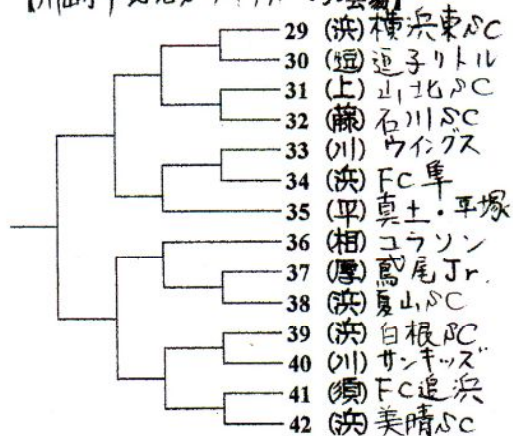 29 (浜) 横浜東SC
30 (逗) 逗子リトル
31 (上) 山北SC
32 (藤) 石川SC
33 (川) ウイングス
34 (浜) FC隼
35 (平) 真土・平塚
36 (相) コラソン
37 (厚) 鳶尾Jr.
38 (浜) 夏山SC
39 (浜) 白根SC
40 (川) サンキッズ
41 (須) FC追浜
42 (浜) 美晴SC